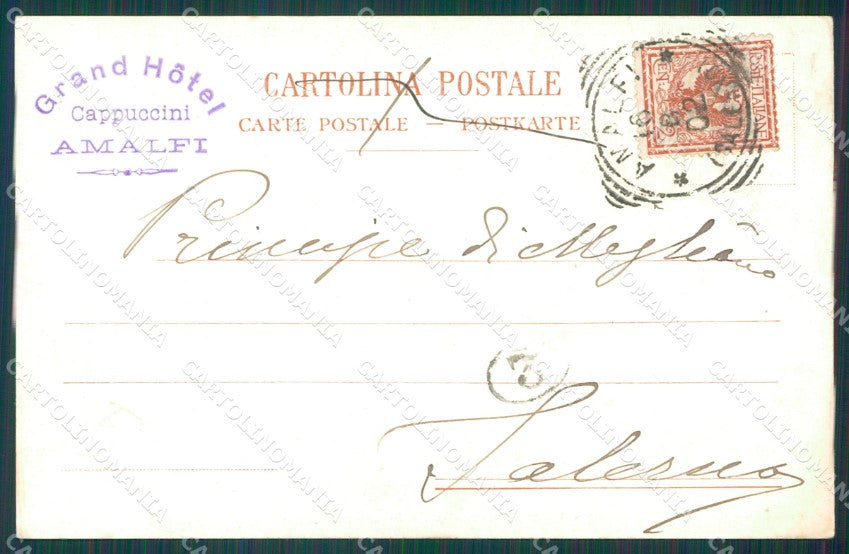 Grand Hôtel
Cappuccini
AMALFI
CARTOLINA POSTALE
CARTE POSTALE — POSTKARTE
AMALFI
02
Principe di
Salerno
3
CARTOLINOMANIA